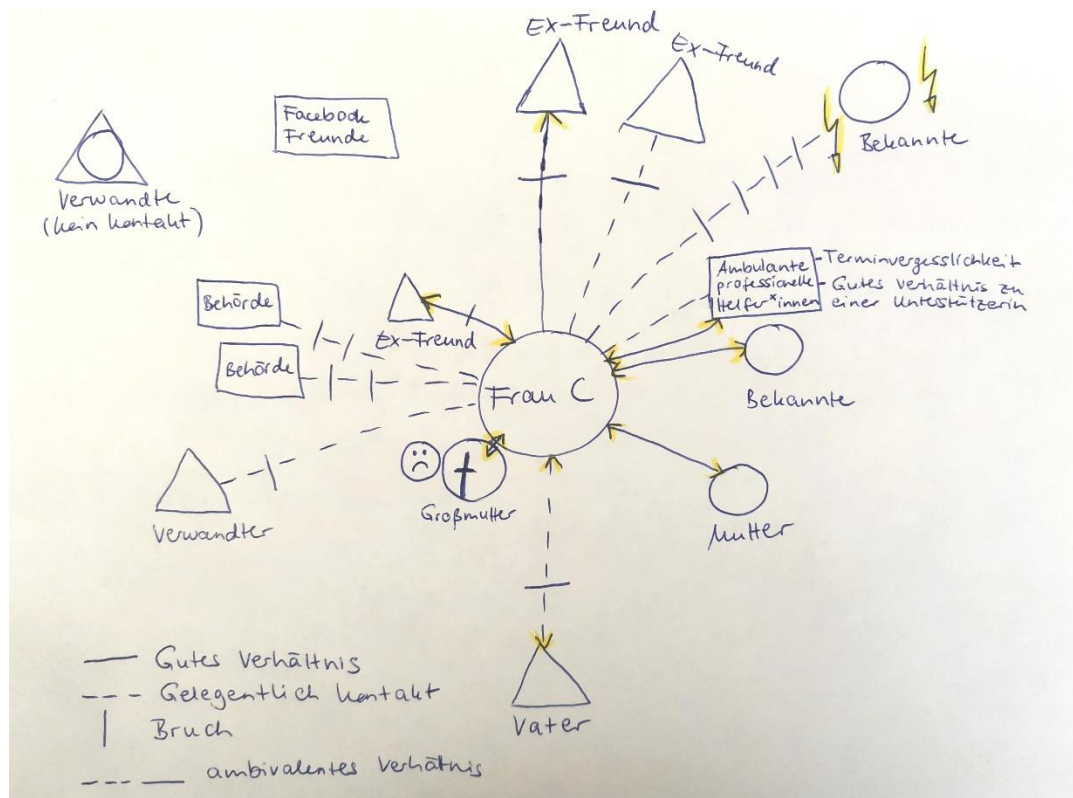 Ex-Freund
Ex-Freund
Facebook
Freunde
Bekannte
Verwandte
(kein Kontakt)
Ambulante
professionelle
Helfer*innen
- Terminvergesslichkeit
- Gutes Verhältnis zu
einer Unterstützerin
Behörde
Ex-Freund
Behörde
Frau C
Bekannte
Großmutter
Verwandter
Mutter
Vater
Gutes Verhältnis
Gelegentlich Kontakt
Bruch
ambivalentes Verhältnis